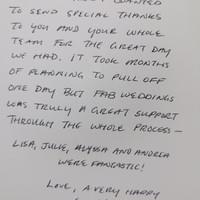 WANTED
TO SEND SPECIAL THANKS
TO YOU AND YOUR WHOLE
TEAM FOR THE GREAT DAY
WE HAD. IT TOOK MONTHS
OF PLANNING TO PULL OFF
ONE DAY BUT FAB WEDDINGS
WAS TRULY A GREAT SUPPORT
THROUGH THE WHOLE PROCESS –
LISA, JULIE, ALYSSA AND ANDREA
WERE FANTASTIC!
LOVE, A VERY HAPPY